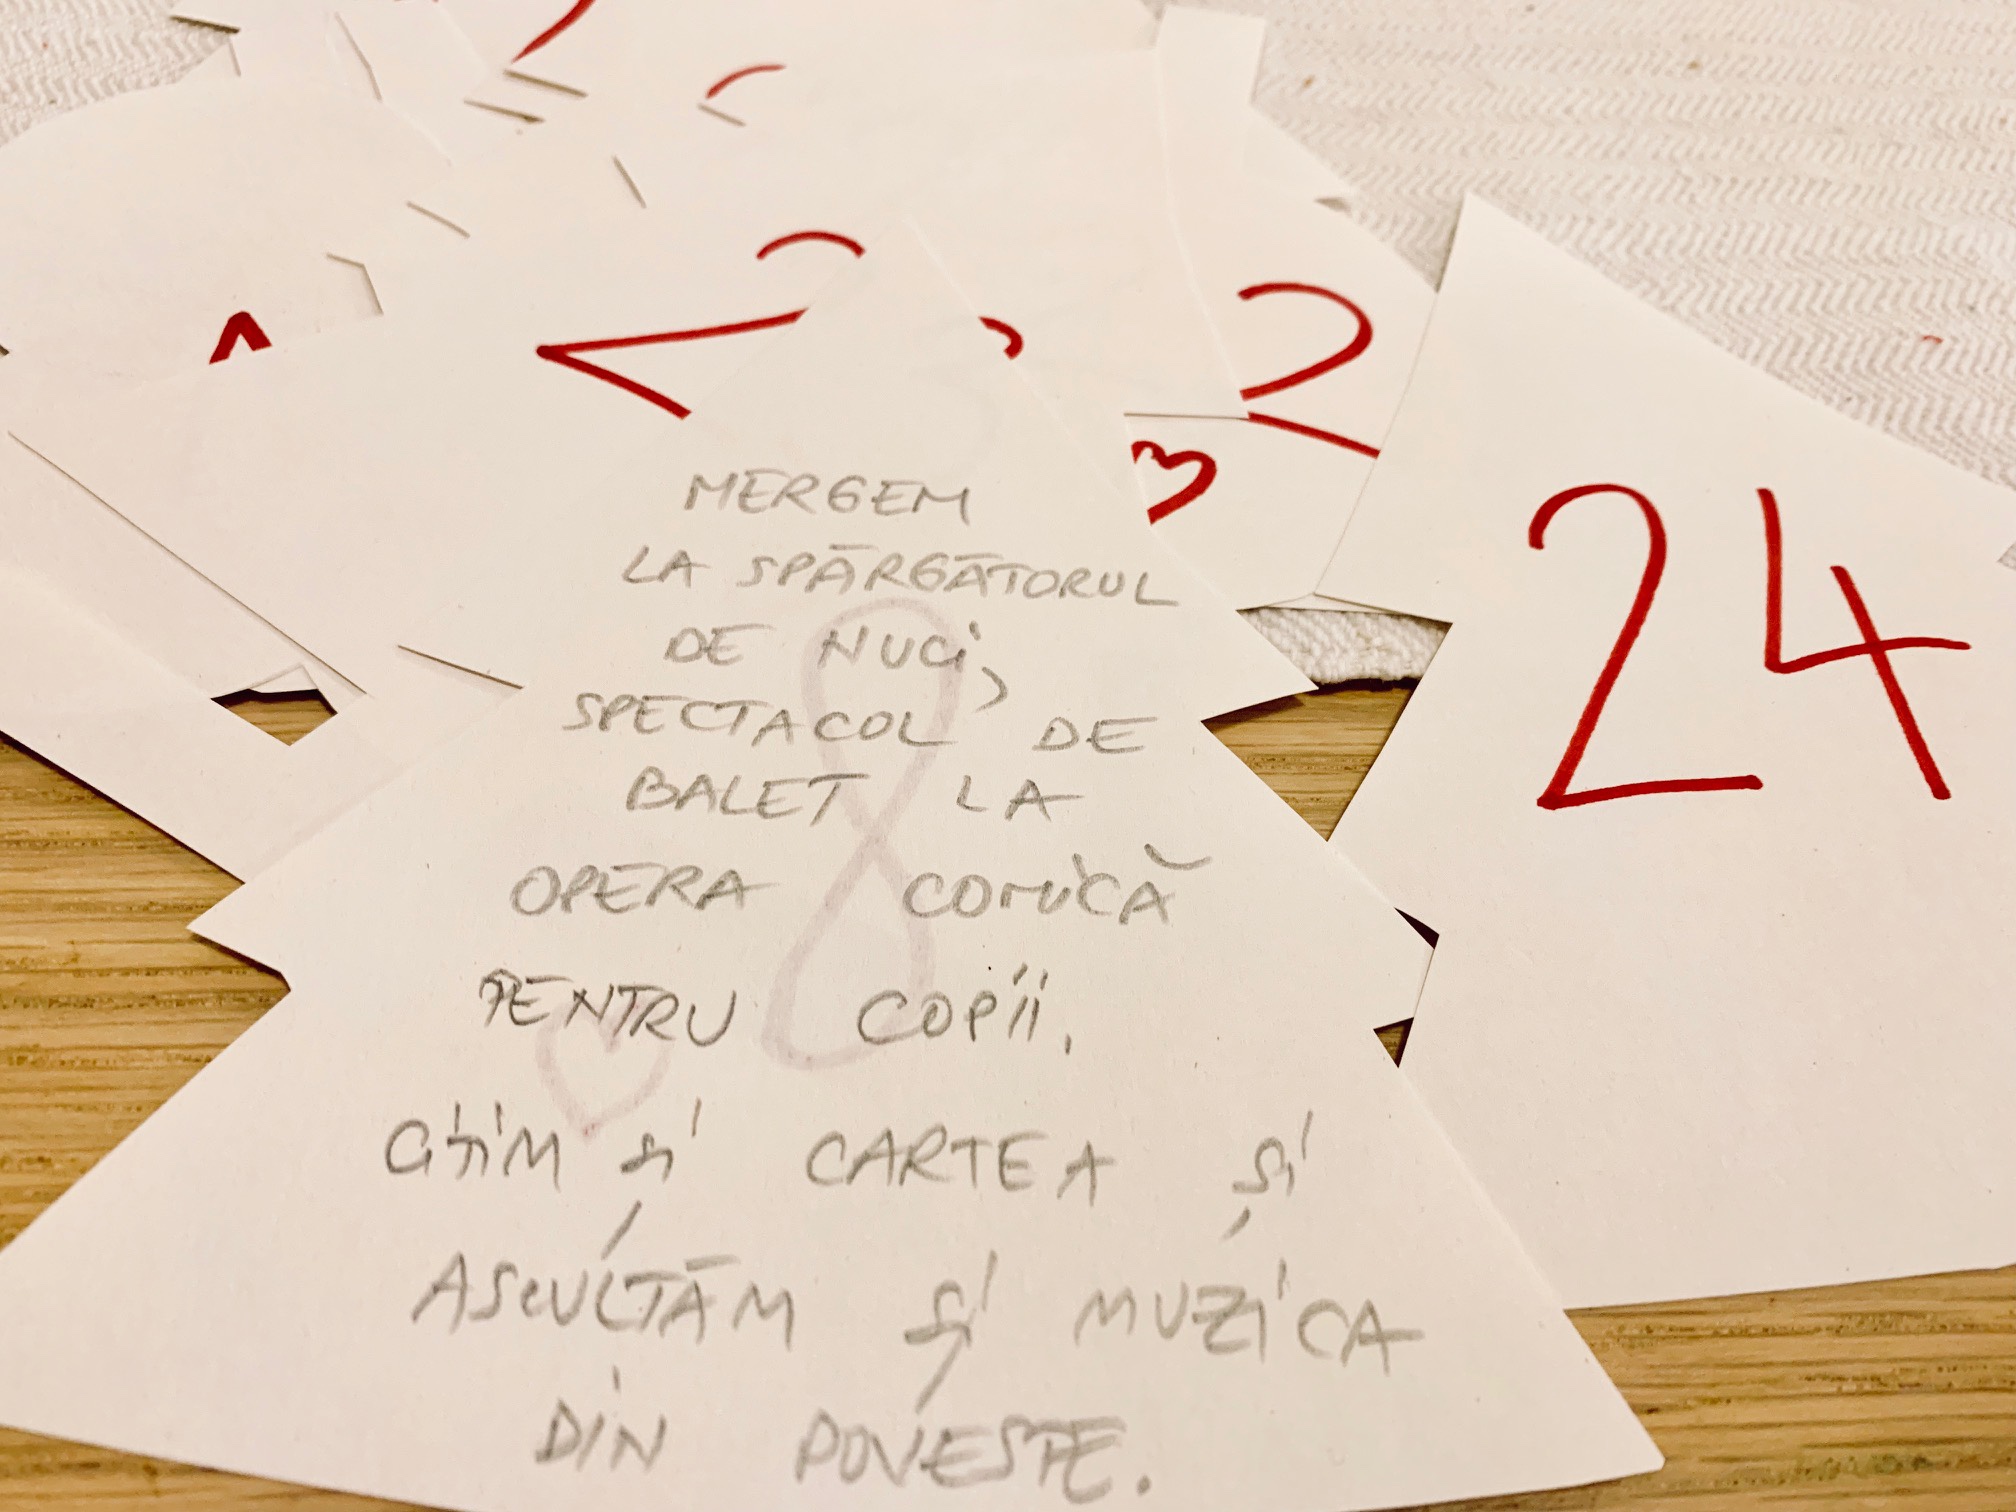 2
24
MERGEM
LA SPĂRGĂTORUL
DE NUCI,
SPECTACOL DE
BALET LA
OPERA COMICĂ
PENTRU COPII.
8
CITIM ȘI CARTEA ȘI
ASCULTĂM ȘI MUZICA
DIN POVESTE.